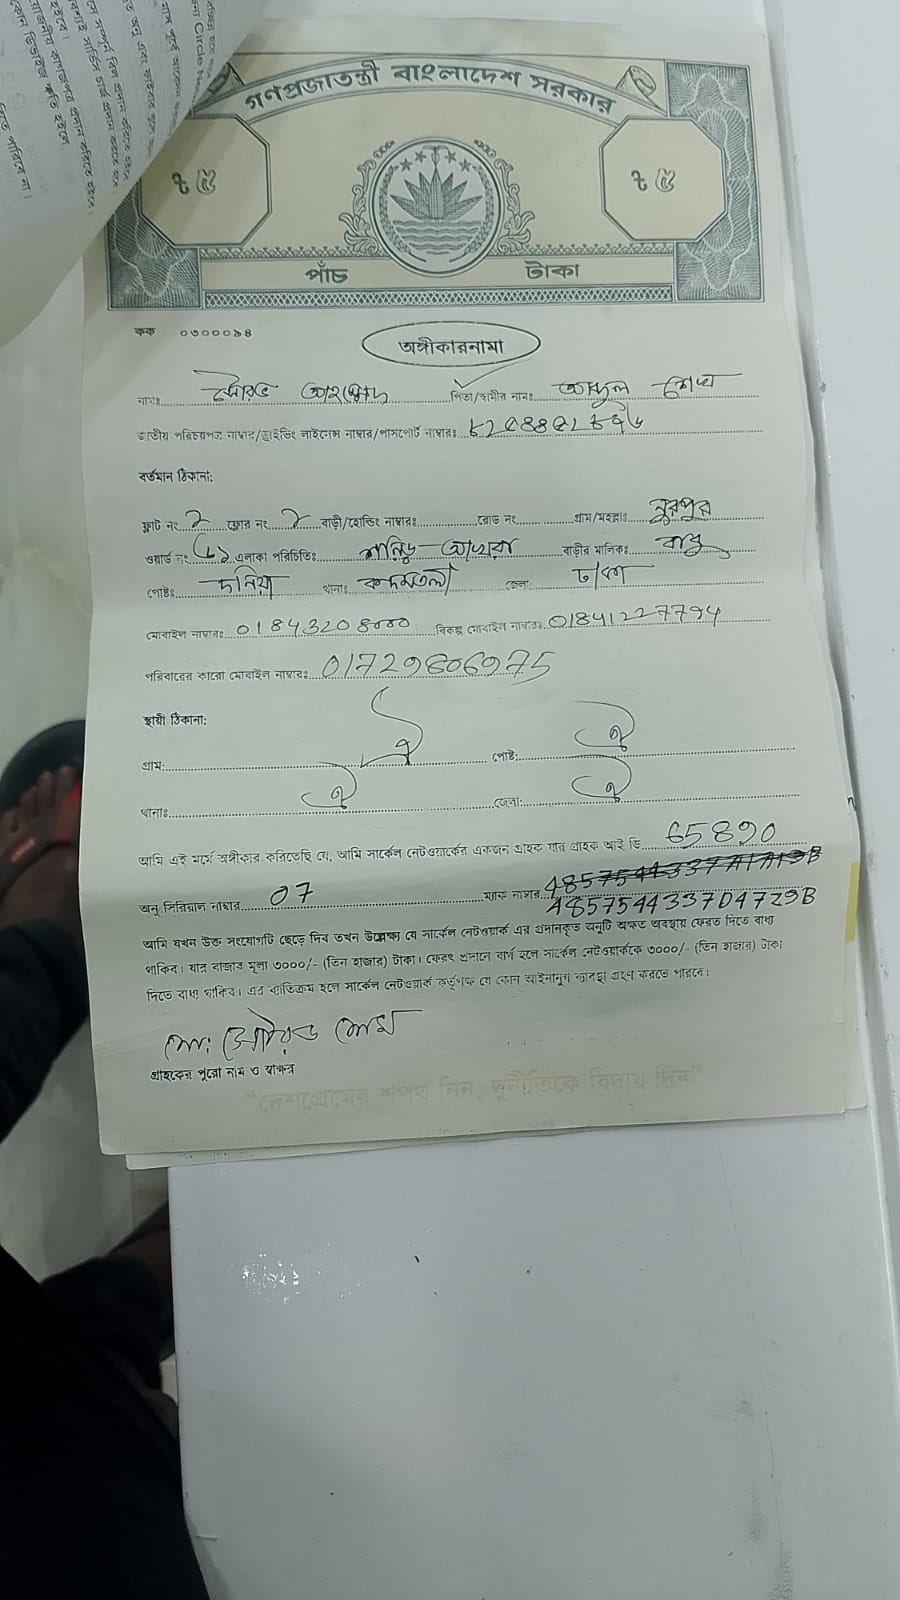 গণপ্রজাতন্ত্রী বাংলাদেশ সরকার
৳ ৫ ৳ ৫
পাঁচ টাকা
কক ০৩০০০৯৪
অঙ্গীকারনামা
নামঃ সৌরভ আহম্মেদ পিতা/স্বামীর নামঃ আব্দুল শেখ
জাতীয় পরিচয়পত্র নাম্বার/ড্রাইভিং লাইসেন্স নাম্বার/পাসপোর্ট নাম্বারঃ
বর্তমান ঠিকানা:
ফ্লাট নং ২ ফ্লোর নং ২ বাড়ী/হোল্ডিং নাম্বারঃ রোড নং গ্রাম/মহল্লাঃ নুরপুর
ওয়ার্ড নং ৬১ এলাকা পরিচিতিঃ শনির-আখরা বাড়ীর মালিকঃ
পোষ্টঃ দনিয়া থানাঃ কদমতলী জেলা: ঢাকা
মোবাইল নাম্বারঃ বিকল্প মোবাইল নাম্বারঃ 01841227794
পরিবারের কারো মোবাইল নাম্বারঃ
স্থায়ী ঠিকানা:
গ্রাম: ঐ পোষ্ট: ঐ
থানাঃ ঐ জেলা: ঐ
আমি এই মর্মে অঙ্গীকার করিতেছি যে, আমি সার্কেল নেটওয়ার্কের একজন গ্রাহক যার গ্রাহক আই ডি
অনু সিরিয়াল নাম্বার 07 ম্যাক নাম্বার
4857544337D4729B
আমি যখন উক্ত সংযোগটি ছেড়ে দিব তখন উল্লেক্ষ্য যে সার্কেল নেটওয়ার্ক এর প্রদানকৃত অনুটি অক্ষত অবস্থায় ফেরত দিতে বাধ্য
থাকিব। যার বাজার মূল্য ৩০০০/- (তিন হাজার) টাকা। ফেরৎ প্রদানে ব্যর্থ হলে সার্কেল নেটওয়ার্ককে ৩০০০/- (তিন হাজার) টাকা
দিতে বাধ্য থাকিব। এর ব্যতিক্রম হলে সার্কেল নেটওয়ার্ক কর্তৃপক্ষ যে কোন আইনানুগ ব্যবস্থা গ্রহণ করতে পারবে।
মোঃ সৌরভ শেখ
গ্রাহকের পুরো নাম ও স্বাক্ষর
“দেশপ্রেমের শপথ নিন, দুর্নীতিকে বিদায় দিন”